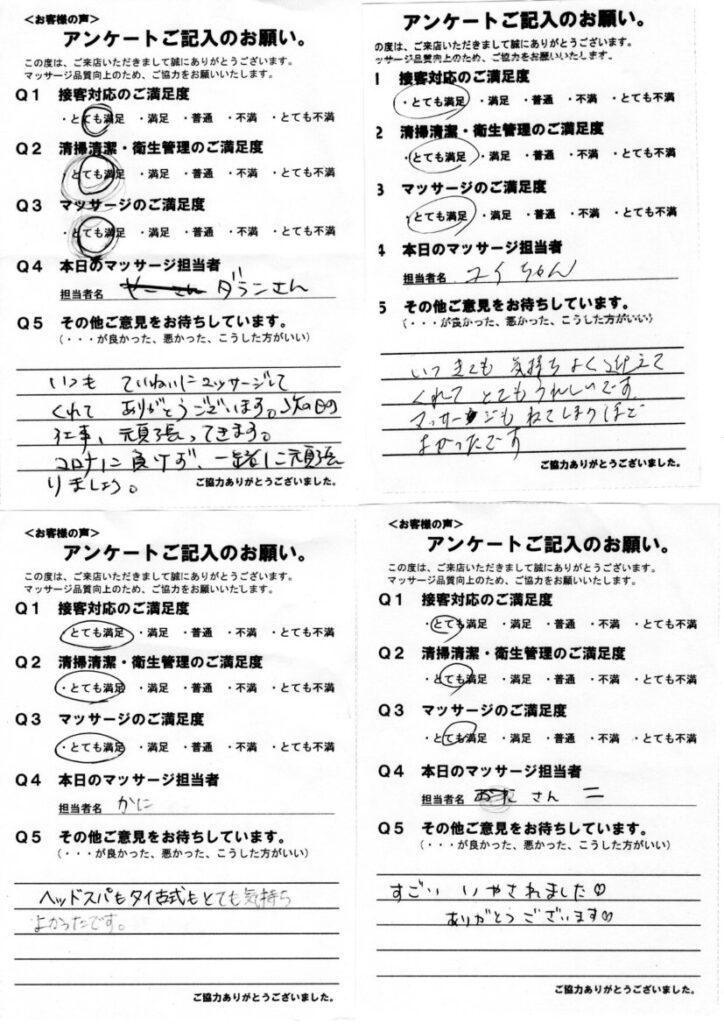 <お客様の声>
アンケートご記入のお願い。
この度は、ご来店いただきまして誠にありがとうございます。
マッサージ品質向上のため、ご協力をお願いいたします。
Q1 接客対応のご満足度
・とても満足 ・満足 ・普通 ・不満 ・とても不満
Q2 清掃清潔・衛生管理のご満足度
・とても満足 ・満足 ・普通 ・不満 ・とても不満
Q3 マッサージのご満足度
・とても満足 ・満足 ・普通 ・不満 ・とても不満
Q4 本日のマッサージ担当者
担当者名 ダランさん
Q5 その他ご意見をお待ちしています。
(・・・が良かった、悪かった、こうした方がいい)
いつも ていねいにマッサージして
くれて ありがとうございます。次の日の
仕事、頑張ってきます。
コロナに負けず、一緒に頑張
りましょう。
ご協力ありがとうございました。
アンケートご記入のお願い。
の度は、ご来店いただきまして誠にありがとうございます。
ッサージ品質向上のため、ご協力をお願いいたします。
1 接客対応のご満足度
・とても満足 ・満足 ・普通 ・不満 ・とても不満
2 清掃清潔・衛生管理のご満足度
・とても満足 ・満足 ・普通 ・不満 ・とても不満
3 マッサージのご満足度
・とても満足 ・満足 ・普通 ・不満 ・とても不満
4 本日のマッサージ担当者
担当者名 ユイちゃん
5 その他ご意見をお待ちしています。
(・・・が良かった、悪かった、こうした方がいい)
いつ きても 気持ちよく迎えて
くれて とてもうれしいです
マッサージも ねてしまうほど
よかったです
ご協力ありがとうございました。
<お客様の声>
アンケートご記入のお願い。
この度は、ご来店いただきまして誠にありがとうございます。
マッサージ品質向上のため、ご協力をお願いいたします。
Q1 接客対応のご満足度
・とても満足 ・満足 ・普通 ・不満 ・とても不満
Q2 清掃清潔・衛生管理のご満足度
・とても満足 ・満足 ・普通 ・不満 ・とても不満
Q3 マッサージのご満足度
・とても満足 ・満足 ・普通 ・不満 ・とても不満
Q4 本日のマッサージ担当者
担当者名 かに
Q5 その他ご意見をお待ちしています。
(・・・が良かった、悪かった、こうした方がいい)
ヘッドスパもタイ古式もとても気持ち
よかったです。
ご協力ありがとうございました。
<お客様の声>
アンケートご記入のお願い。
この度は、ご来店いただきまして誠にありがとうございます。
マッサージ品質向上のため、ご協力をお願いいたします。
Q1 接客対応のご満足度
・とても満足 ・満足 ・普通 ・不満 ・とても不満
Q2 清掃清潔・衛生管理のご満足度
・とても満足 ・満足 ・普通 ・不満 ・とても不満
Q3 マッサージのご満足度
・とても満足 ・満足 ・普通 ・不満 ・とても不満
Q4 本日のマッサージ担当者
担当者名 さん ニ
Q5 その他ご意見をお待ちしています。
(・・・が良かった、悪かった、こうした方がいい)
すごい いやされました♡
ありがとうございます♡
ご協力ありがとうございました。